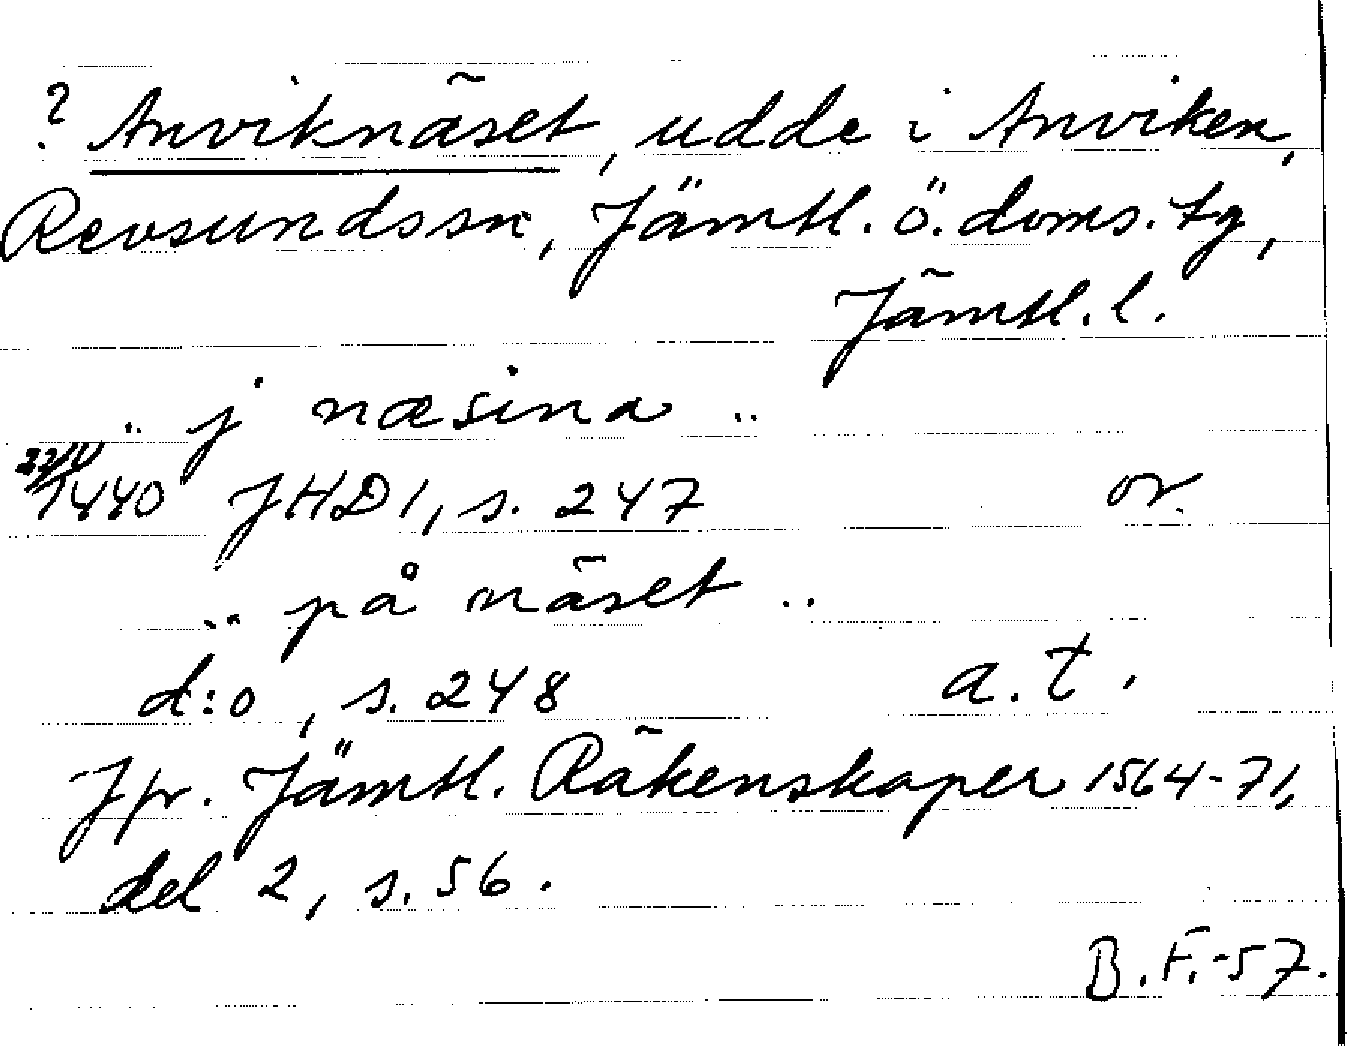 ? Anviknäset, udde i Anviken,
Revsundssn, Jämtl. ö. doms. tg,
Jämtl. l.
.. j næsina ..
1440 JHD 1, s. 247 or.
.. på näset ..
d:o, s. 248 a. t.
Jfr. Jämtl. Räkenskaper 1564-71,
del 2, s. 56.
B. F. -57.